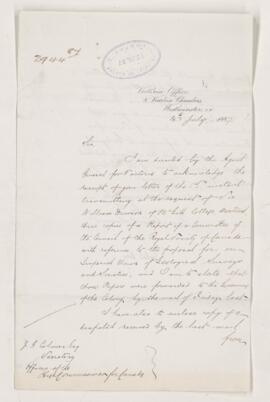 2944/87
Victoria Office
8 Victoria Chambers
Westminster, S.W.
26th July, 1887
Sir
I am directed by the Agent
General for Victoria to acknowledge the
receipt of your letter of the instant
transmitting at the request of Sir
William Dawson of McGill College Montreal
three copies of a Report of a Committee of
the Council of the Royal Society of Canada
with reference to the proposal for an
Imperial Union of Geological Surveys
and Societies, and I am to state that
these Papers were forwarded to the Governor
of the Colony by the mail of Friday last.
I have also to enclose copy of a
despatch received by the last mail
from
J. G. Colmer Esq
Secretary
Office of the
High Commissioner for Canada